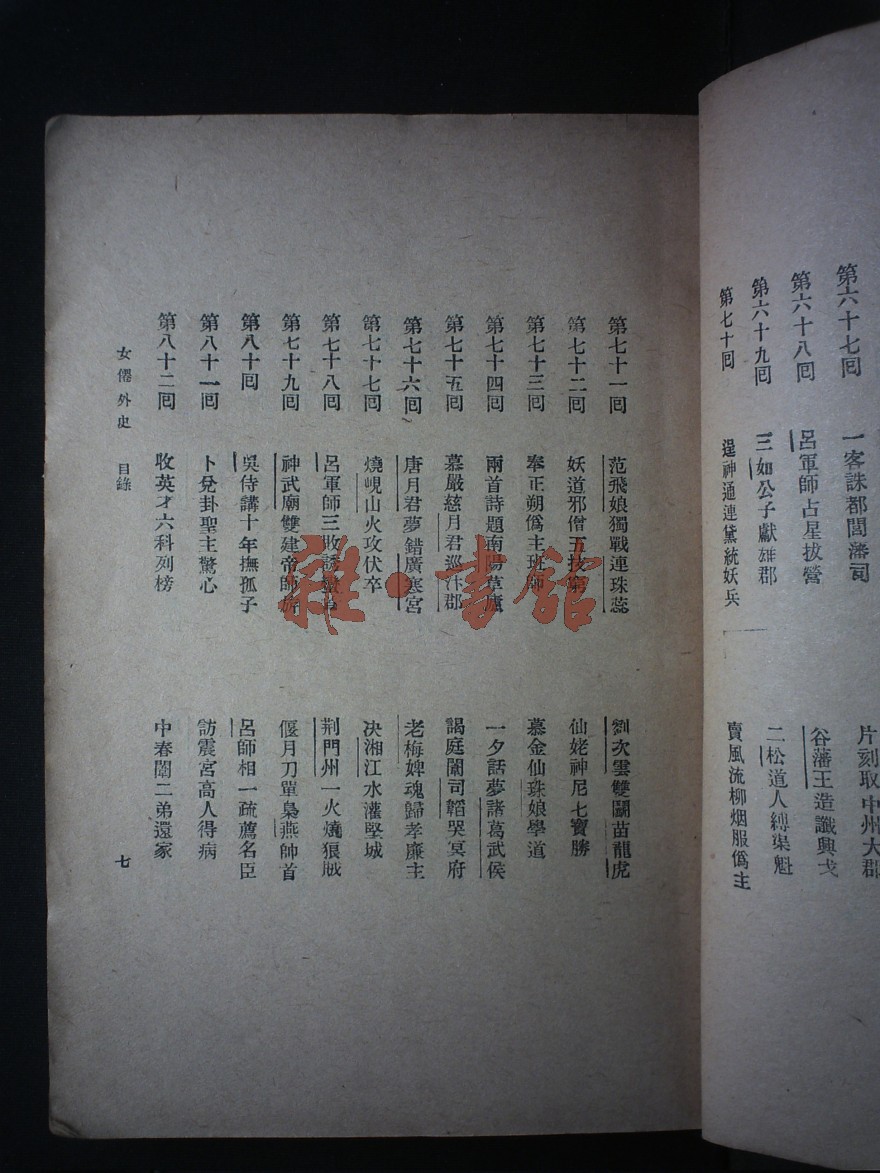 第六十七回 一客誅都閫藩司 片刻取中州大郡
第六十八回 呂軍師占星拔營 谷藩王造讖興戈
第六十九回 三如公子獻雄郡 二松道人縛渠魁
第七十回 逞神通連黛統妖兵 賣風流柳烟服偽主
第七十一回 范飛娘獨戰連珠蕊 劉次雲雙鬭苗龍虎
第七十二回 妖道邪僧五技窮 仙姥神尼七寶勝
第七十三回 奉正朔偽主班師 慕金仙珠娘學道
第七十四回 兩首詩題南陽草廬 一夕話夢諸葛武侯
第七十五回 慕嚴慈月君巡汴郡 謁庭闈司韜哭冥府
第七十六回 唐月君夢錯廣寒宮 老梅婢魂歸孝廉主
第七十七回 燒峴山火攻伏卒 決湘江水灌堅城
第七十八回 呂軍師三敗誘 荆門州一火燒狠賊
第七十九回 神武廟雙建帝師旂 偃月刀單梟燕帥首
第八十回 吳侍講十年撫孤子 呂師相一疏薦名臣
第八十一回 卜兌卦聖主驚心 訪震宮高人得病
第八十二回 收英才六科列榜 中春闈二弟還家
女僊外史 目錄 七
雅·書館